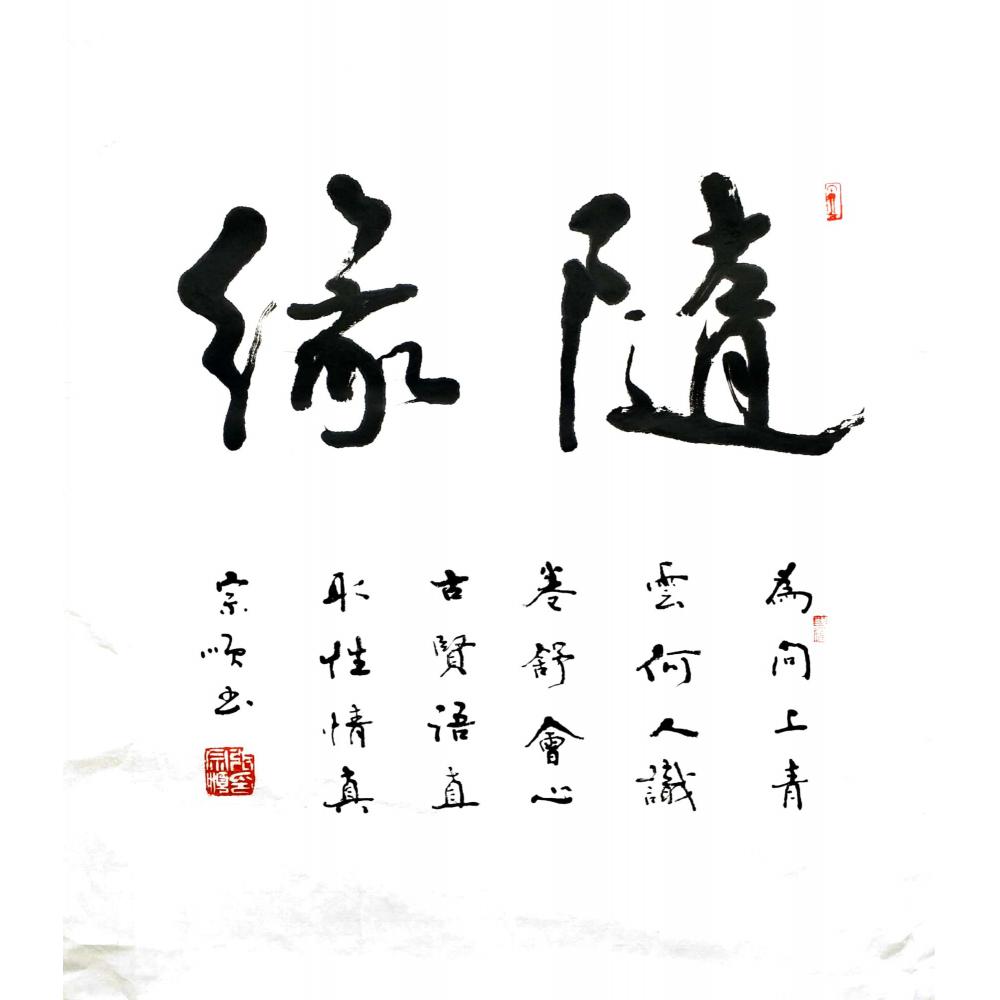 隨緣
為問上青
雲何人識
卷舒會心
古賢語直
取性情真
宗順書